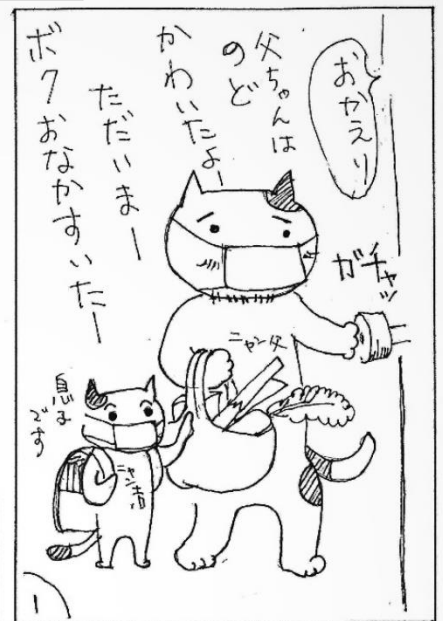 おかえり
ガチャッ
父ちゃんは
のど
かわいたよー
ただいまー
ボクおなかすいたー
ニャン父
息子
です
ニャン吉
1